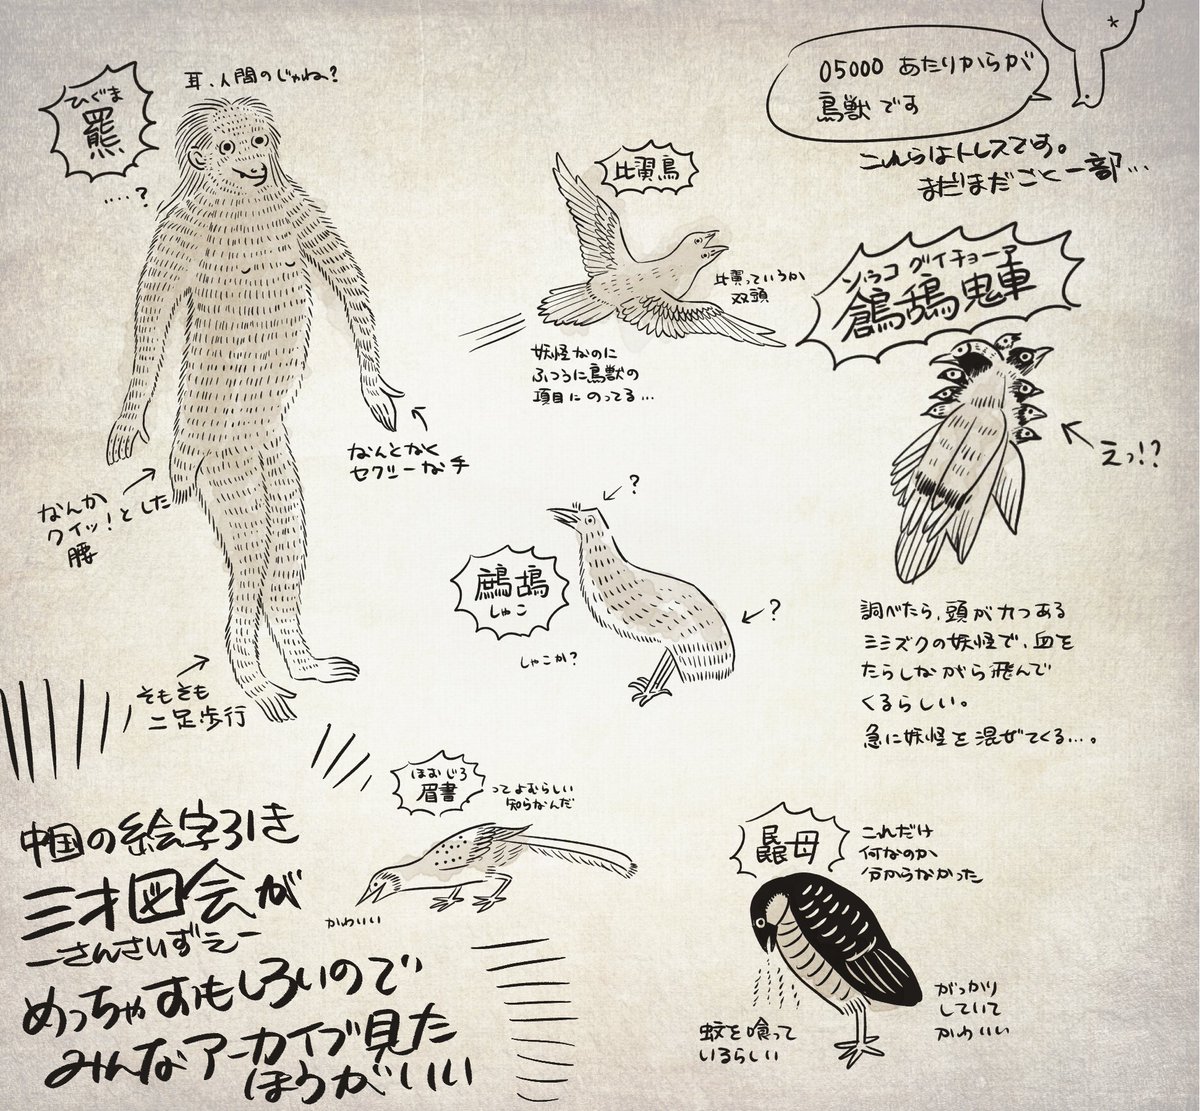 ひぐま
羆
....?
耳、人間のじゃね?
05000 あたりからが
鳥獣です
これらはトレスです。
まだまだごく一部...
比翼鳥
比翼っていうか
双頭
妖怪なのに
ふつうに鳥獣の
項目にのってる...
ソウコ グイチョー?
鶬鴰鬼車
えっ!?
調べたら、頭が九つある
ミミズクの妖怪で、血を
たらしながら飛んで
くるらしい。
急に妖怪を混ぜてくる...。
なんとなく
セクシーな手
なんか
クイッ!とした
腰
そもそも
二足歩行
?
?
鷓鴣
しゃこ
しゃこか?
ほおじろ
眉書
ってよむらしい
知らなんだ
かわいい
母
これだけ
何なのか
分からなかった
蚊を喰って
いるらしい
がっかり
していて
かわいい
中国の絵字引き
三才図会が
ーさんさいずえー
めっちゃおもしろいので
みんなアーカイブ見た
ほうがいい